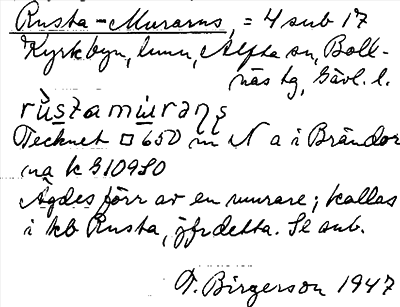 Rusta-Murarns, = 4 sub 17
Kyrkbyn, hmn, Alfta sn, Boll-
näs tg, Gävl. l.
rùstamiurạṇş
Tecknet □ 650 m N a i Brändor
na k G109S0
Ägdes förr av en murare; kallas
i kb Rusta, jfr detta. Se sub.
V. Birgerson 1947